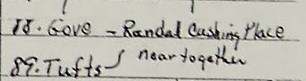 88. Gove - Randal Cushing Place
89. Tufts near together